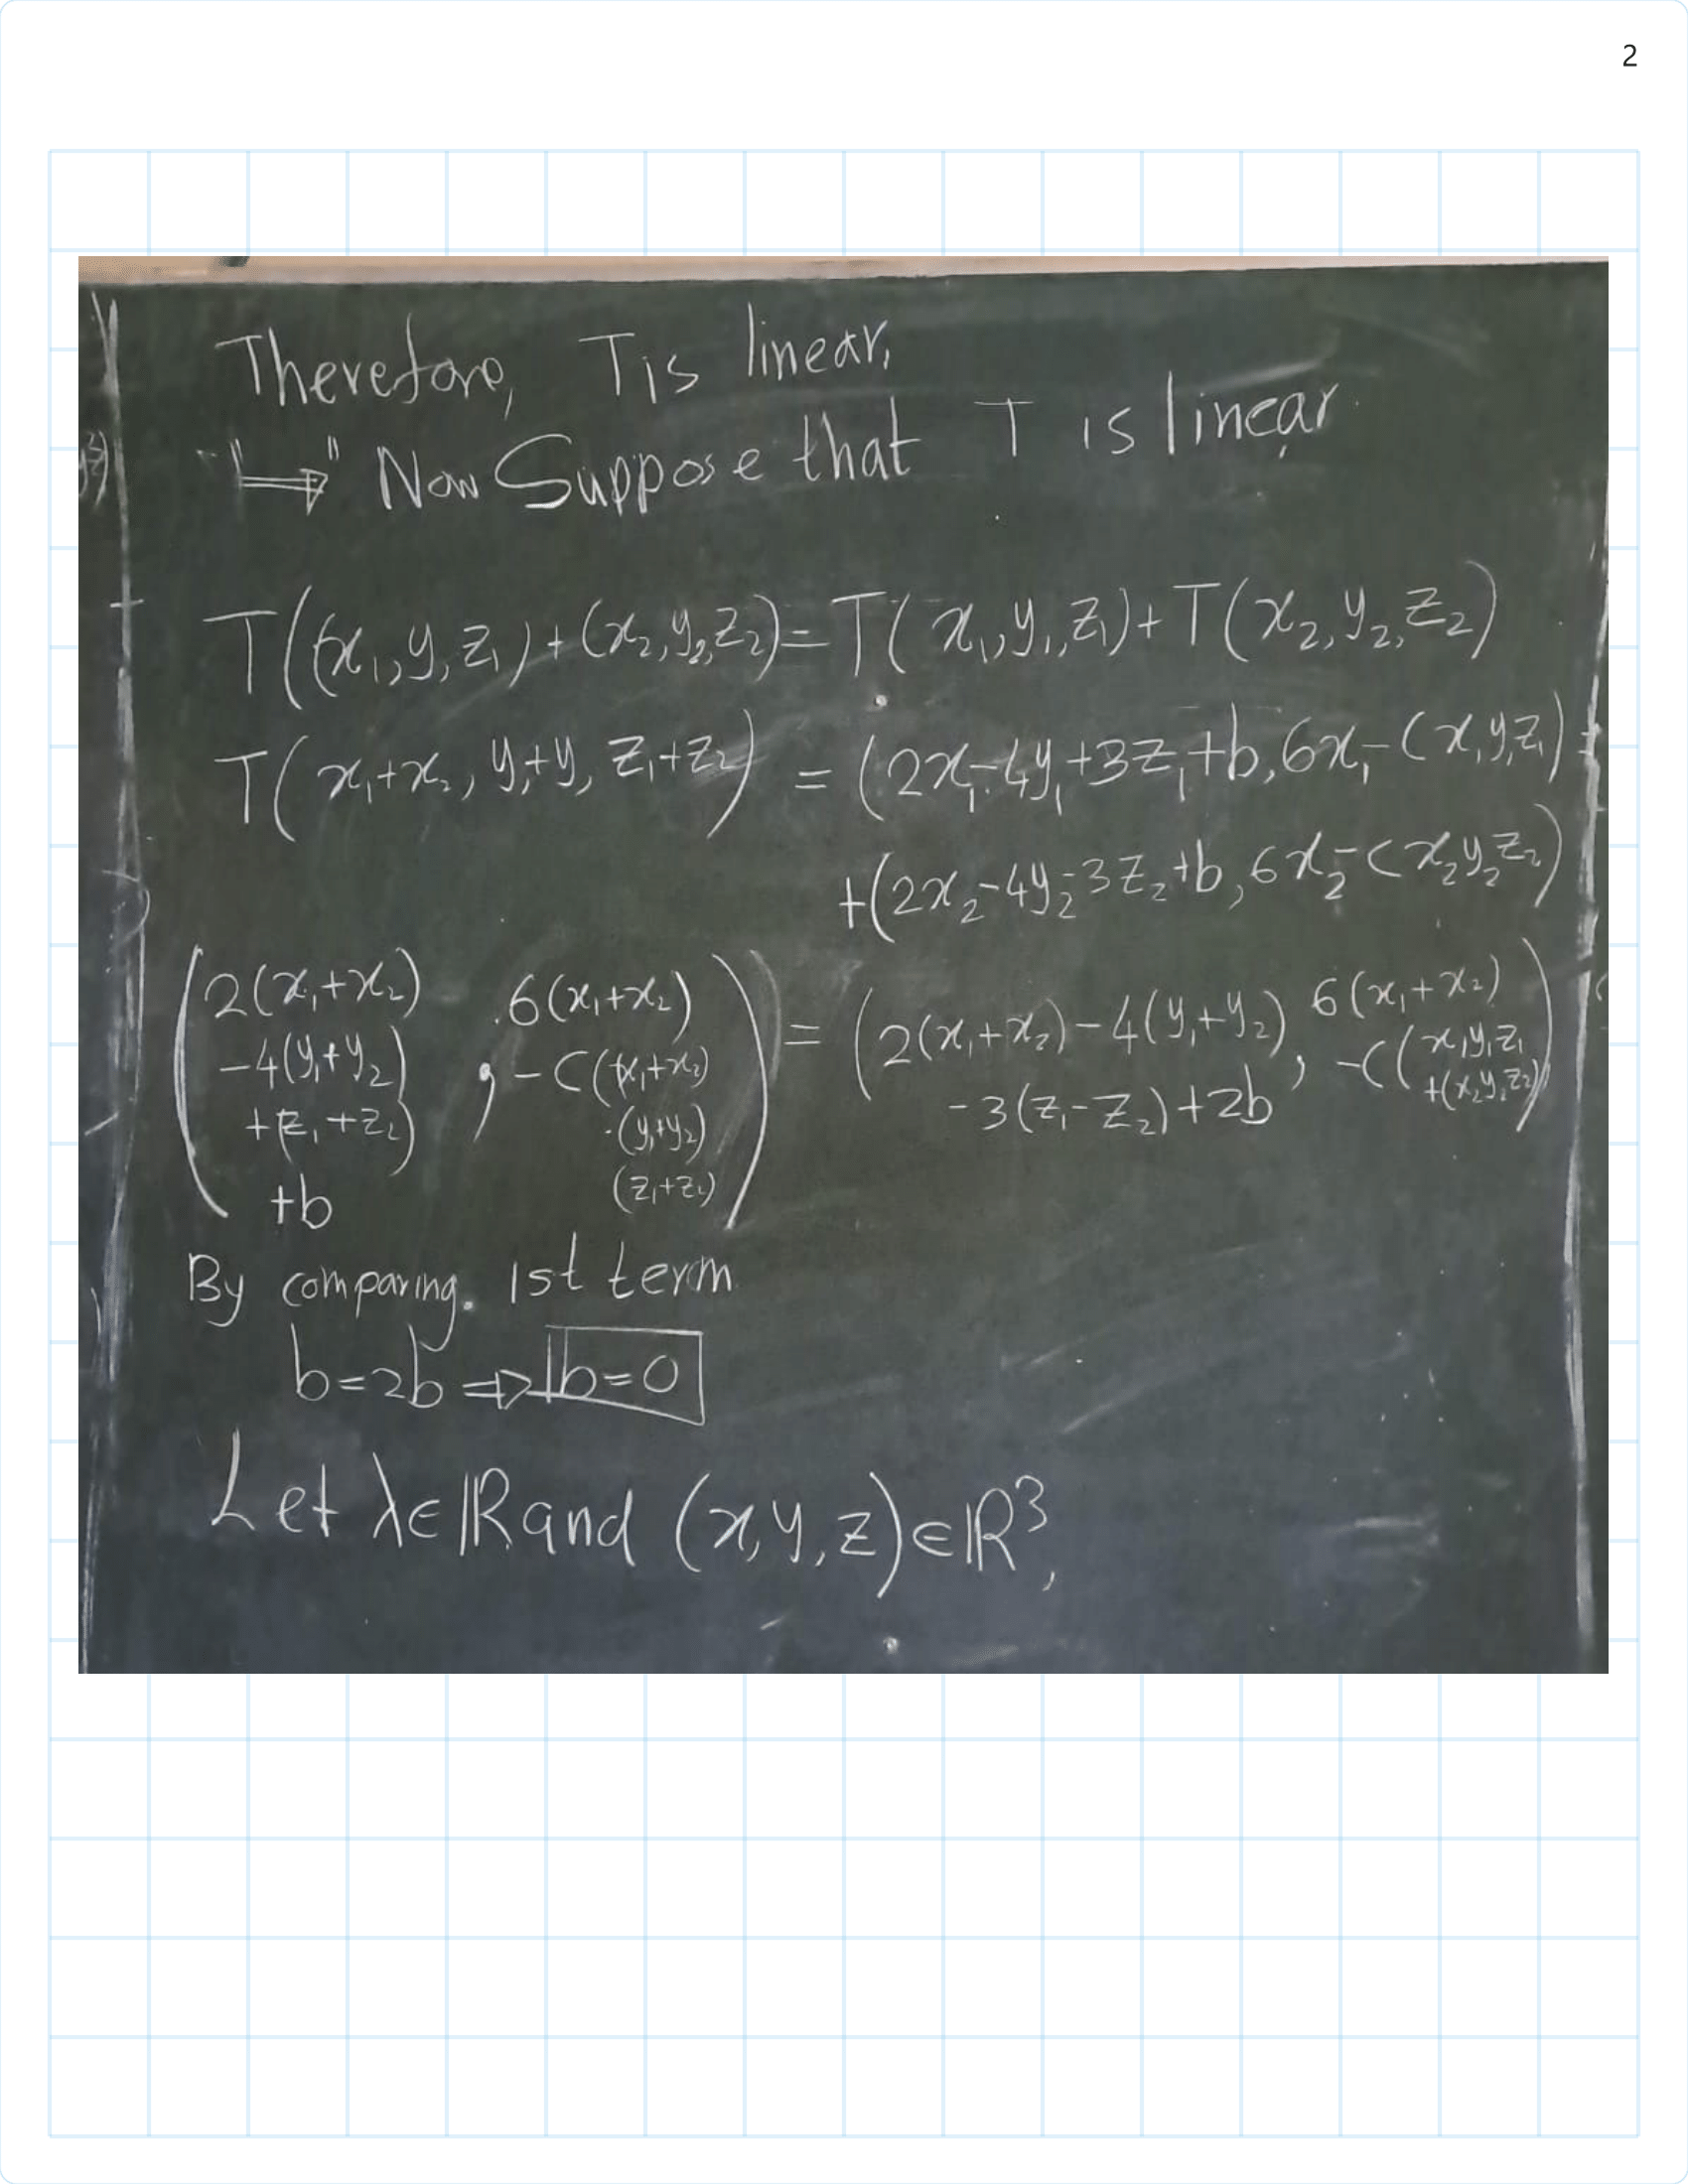 2
Therefore, T is linear.
"⟹" Now Suppose that T is linear
T((x₁,y,z₁)+(x₂,y₂,z₂)=T(x₁,y₁,z₁)+T(x₂,y₂,z₂)
T(x₁+x₂, y₁+y, z₁+z₂) = (2x₁-4y₁+3z₁+b,6x₁-(x₁y₁z₁)
+(2x₂-4y₂-3z₂+b,6x₂-Cx₂y₂z₂)
(2(x₁+x₂) -4(y₁+y₂) +(z₁+z₂) +b , 6(x₁+x₂) -C((x₁+x₂) ·(y₁+y₂) (z₁+z₂)) = (2(x₁+x₂)-4(y₁+y₂) -3(z₁-z₂)+2b , 6(x₁+x₂) -C(x₁y₁z₁ +(x₂y₂z₂))
By comparing. 1st term
b=2b ⟹ b=0
Let λ∈ℝ and (x,y,z)∈ℝ³,